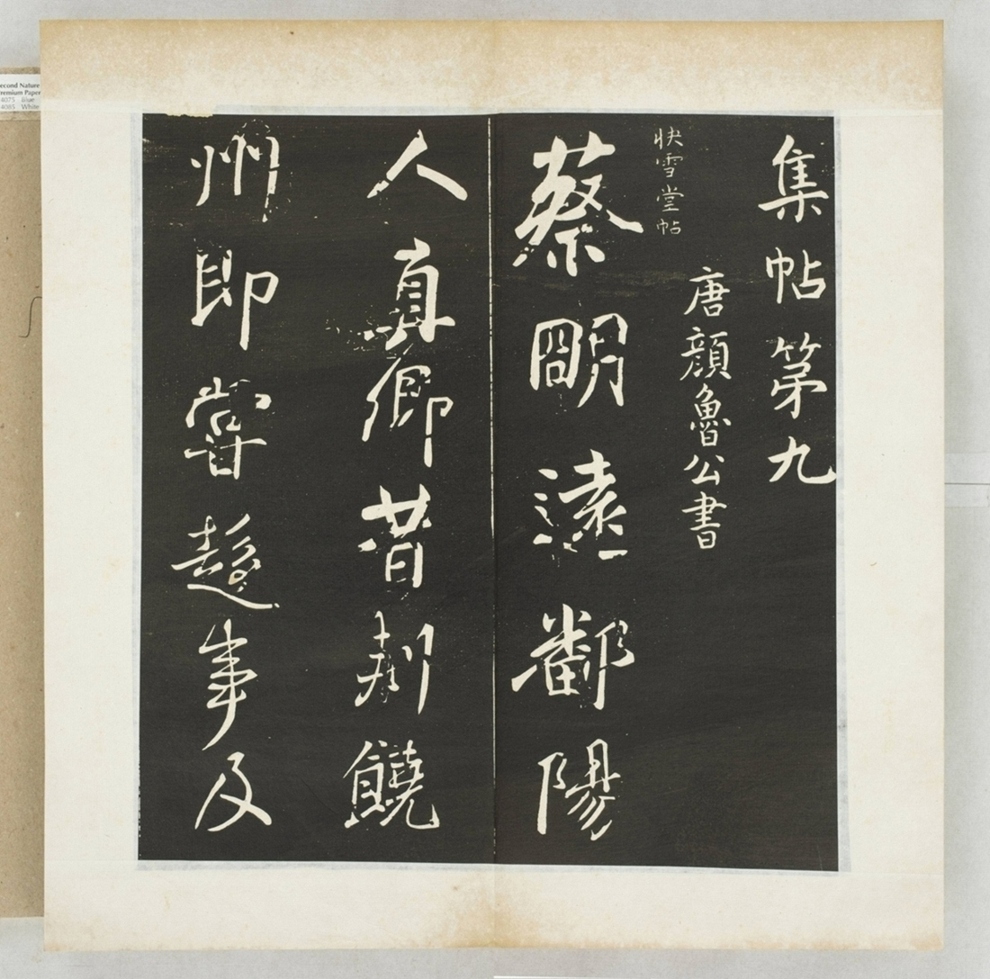 集帖第九
唐顏魯公書
快雪堂帖
蔡朙遠鄱陽
人真卿昔刺饒
州即嘗趍事及
Nature
Paper
4075 Blue
4085 White